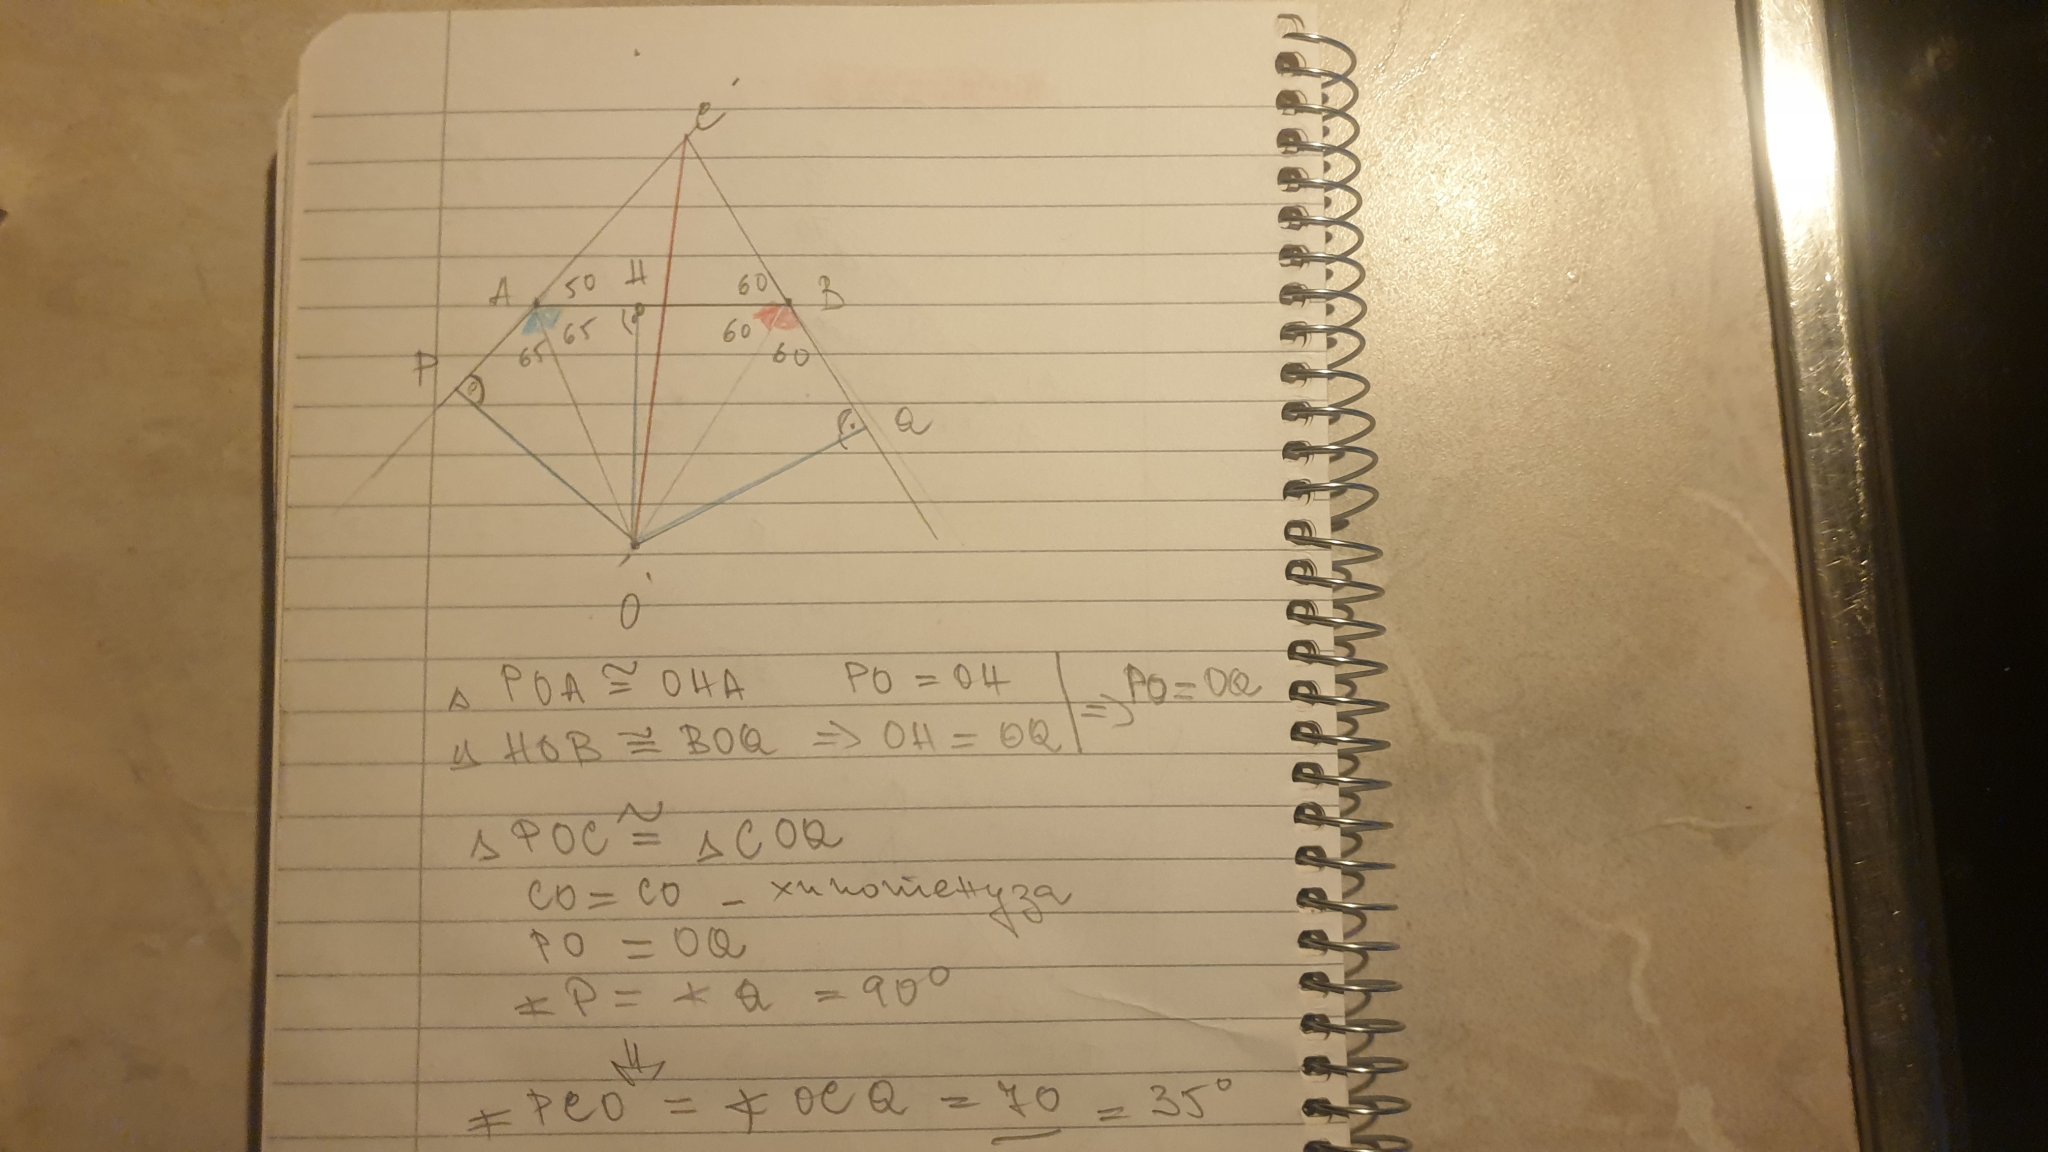 C
A 50 H 60 B
65 65 60 60
P
Q
O
△ POA ≅ OHA PO = OH ⇒ PO = OQ
△ HOB ≅ BOQ ⇒ OH = OQ
△ POC ≅ △ COQ
CO = CO - хипотенуза
PO = OQ
∢ P = ∢ Q = 90°
⇓
∢ PCO = ∢ OCQ = 70 = 35°